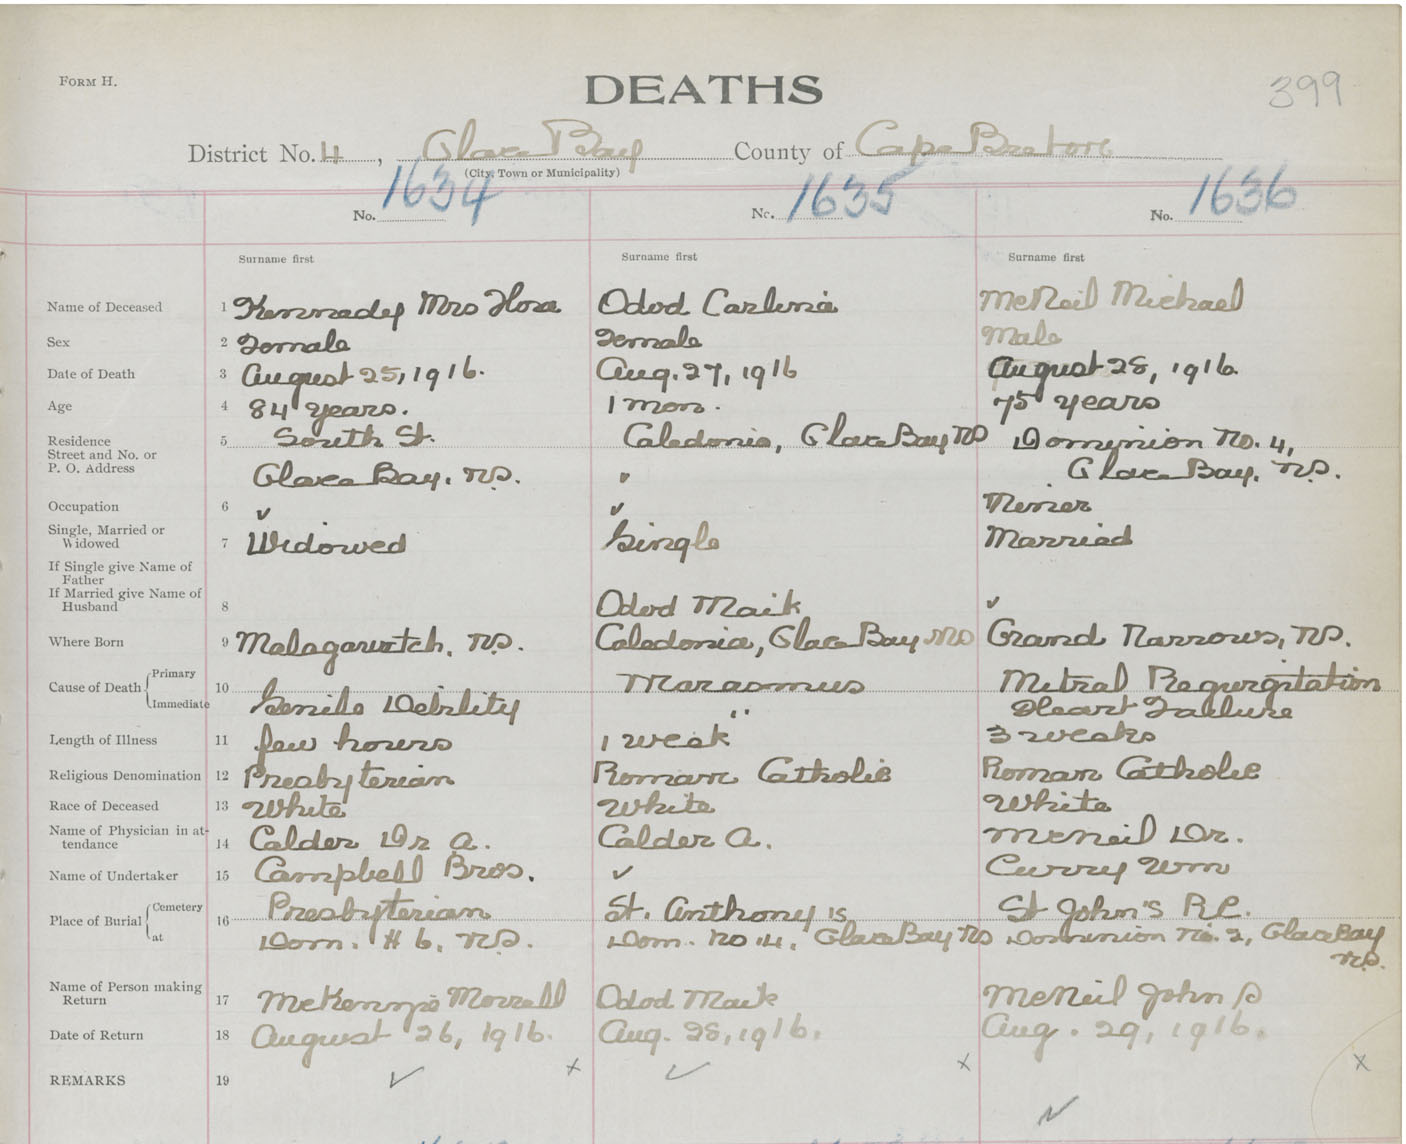 FORM H.
DEATHS
399
District No. 4, Glace Bay County of Cape Breton
(City, Town or Municipality)
No. 1634 No. 1635 No. 1636
Surname first Surname first Surname first
Name of Deceased 1 Kennadey Mrs Flora Odod Carlinia McNeil Michael
Sex 2 Female Female Male
Date of Death 3 August 25, 1916. Aug. 27, 1916 August 28, 1916
Age 4 84 years. 1 mon. 75 years
Residence 5 South St. Caledonia, Glace Bay NS Dominion No. 4,
Street and No. or
P. O. Address Glace Bay, N.S. " Glace Bay, N.S.
Occupation 6 ✓ ✓ Miner
Single, Married or
Widowed 7 Widowed Single Married
If Single give Name of
Father
If Married give Name of
Husband 8 Odod Maik ✓
Where Born 9 Malagawatch, N.S. Caledonia, Glace Bay NS Grand Narrows, N.S.
Cause of Death Primary 10 Marasmus Mitral Regurgitation
Immediate Senile Debility " Heart Failure
Length of Illness 11 few hours 1 week 3 weeks
Religious Denomination 12 Presbyterian Roman Catholic Roman Catholic
Race of Deceased 13 White White White
Name of Physician in at-
tendance 14 Calder Dr A. Calder A. McNeil Dr.
Name of Undertaker 15 Campbell Bros. ✓ Curry Wm
Place of Burial Cemetery 16 Presbyterian St. Anthony's St John's R.C.
at Dom. # 6, N.S. Dom. No. 4, Glace Bay NS Dominion No. 2, Glace Bay
N.S.
Name of Person making
Return 17 Morrell Odod Maik McNeil John S
Date of Return 18 August 26, 1916. Aug. 28, 1916. Aug. 29, 1916.
REMARKS 19 ✓ x ✓ x ✓ x